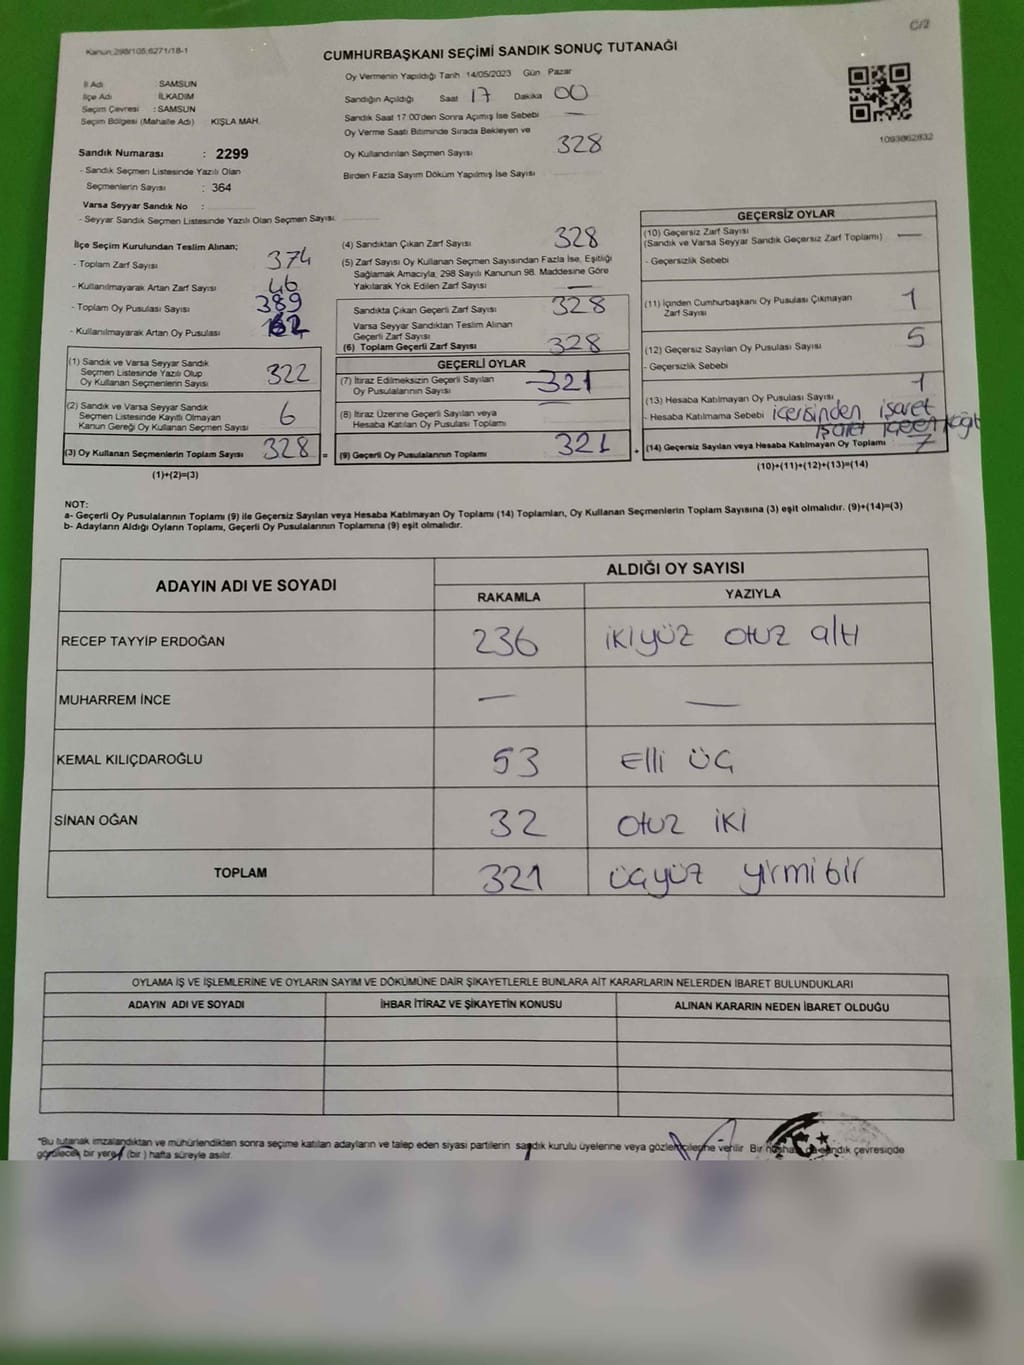 C/2
Kanun:298/105;6271/18-1
CUMHURBAŞKANI SEÇİMİ SANDIK SONUÇ TUTANAĞI
İl Adı : SAMSUN
İlçe Adı : İLKADIM
Seçim Çevresi : SAMSUN
Seçim Bölgesi (Mahalle Adı) : KIŞLA MAH.
Oy Vermenin Yapıldığı Tarih 14/05/2023 Gün Pazar
Sandığın Açıldığı Saat 17 Dakika 00
Sandık Saat 17:00'den Sonra Açımış İse Sebebi —
Oy Verme Saati Bitiminde Sırada Bekleyen ve
Oy Kullandırılan Seçmen Sayısı 328
Birden Fazla Sayım Döküm Yapılmış İse Sayısı
1093862832
Sandık Numarası : 2299
- Sandık Seçmen Listesinde Yazılı Olan
Seçmenlerin Sayısı : 364
Varsa Seyyar Sandık No :
- Seyyar Sandık Seçmen Listesinde Yazılı Olan Seçmen Sayısı:
İlçe Seçim Kurulundan Teslim Alınan;
- Toplam Zarf Sayısı 374
- Kullanılmayarak Artan Zarf Sayısı 46
- Toplam Oy Pusulası Sayısı 389
- Kullanılmayarak Artan Oy Pusulası
(1) Sandık ve Varsa Seyyar Sandık
Seçmen Listesinde Yazılı Olup
Oy Kullanan Seçmenlerin Sayısı 322
(2) Sandık ve Varsa Seyyar Sandık
Seçmen Listesinde Kayıtlı Olmayan
Kanun Gereği Oy Kullanan Seçmen Sayısı 6
(3) Oy Kullanan Seçmenlerin Toplam Sayısı 328 =
(1)+(2)=(3)
(4) Sandıktan Çıkan Zarf Sayısı 328
(5) Zarf Sayısı Oy Kullanan Seçmen Sayısından Fazla İse, Eşitliği
Sağlamak Amacıyla, 298 Sayılı Kanunun 98. Maddesine Göre
Yakılarak Yok Edilen Zarf Sayısı —
Sandıkta Çıkan Geçerli Zarf Sayısı 328
Varsa Seyyar Sandıktan Teslim Alınan
Geçerli Zarf Sayısı
(6) Toplam Geçerli Zarf Sayısı 328
GEÇERLİ OYLAR
(7) İtiraz Edilmeksizin Geçerli Sayılan
Oy Pusulalarının Sayısı 321
(8) İtiraz Üzerine Geçerli Sayılan veya
Hesaba Katılan Oy Pusulası Toplamı
(9) Geçerli Oy Pusulalarının Toplamı 321 +
GEÇERSİZ OYLAR
(10) Geçersiz Zarf Sayısı —
(Sandık ve Varsa Seyyar Sandık Geçersiz Zarf Toplamı)
- Geçersizlik Sebebi
(11) İçinden Cumhurbaşkanı Oy Pusulası Çıkmayan
Zarf Sayısı 1
(12) Geçersiz Sayılan Oy Pusulası Sayısı 5
- Geçersizlik Sebebi
(13) Hesaba Katılmayan Oy Pusulası Sayısı 1
- Hesaba Katılmama Sebebi içerisinden işaret
(14) Geçersiz Sayılan veya Hesaba Katılmayan Oy Toplamı 7
(10)+(11)+(12)+(13)=(14)
NOT:
a- Geçerli Oy Pusulalarının Toplamı (9) ile Geçersiz Sayılan veya Hesaba Katılmayan Oy Toplamı (14) Toplamları, Oy Kullanan Seçmenlerin Toplam Sayısına (3) eşit olmalıdır. (9)+(14)=(3)
b- Adayların Aldığı Oyların Toplamı, Geçerli Oy Pusulalarının Toplamına (9) eşit olmalıdır.
ADAYIN ADI VE SOYADI ALDIĞI OY SAYISI
RAKAMLA YAZIYLA
RECEP TAYYİP ERDOĞAN 236 ikiyüz otuz altı
MUHARREM İNCE — —
KEMAL KILIÇDAROĞLU 53 Elli üç
SİNAN OĞAN 32 otuz iki
TOPLAM 321 üçyüz yirmi bir
OYLAMA İŞ VE İŞLEMLERİNE VE OYLARIN SAYIM VE DÖKÜMÜNE DAİR ŞİKAYETLERLE BUNLARA AİT KARARLARIN NELERDEN İBARET BULUNDUKLARI
ADAYIN ADI VE SOYADI İHBAR İTİRAZ VE ŞİKAYETİN KONUSU ALINAN KARARIN NEDEN İBARET OLDUĞU
"Bu tutanak imzalandıktan ve mühürlendikten sonra seçime katılan adayların ve talep eden siyasi partilerin sandık kurulu üyelerine veya gözlemcilerine verilir. Bir nüshası da sandık çevresinde
görülecek bir yere 1 (bir ) hafta süreyle asılır.